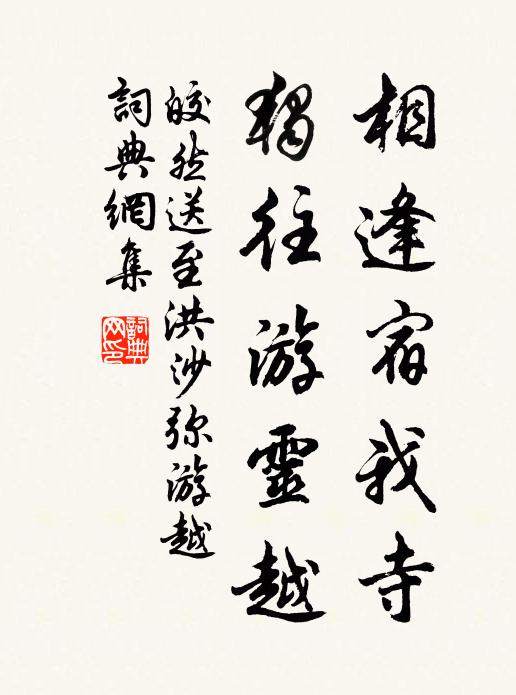 相逢宿我寺
獨往游靈越
皎然送至洪沙弥游越
詞典網集
詞典网印